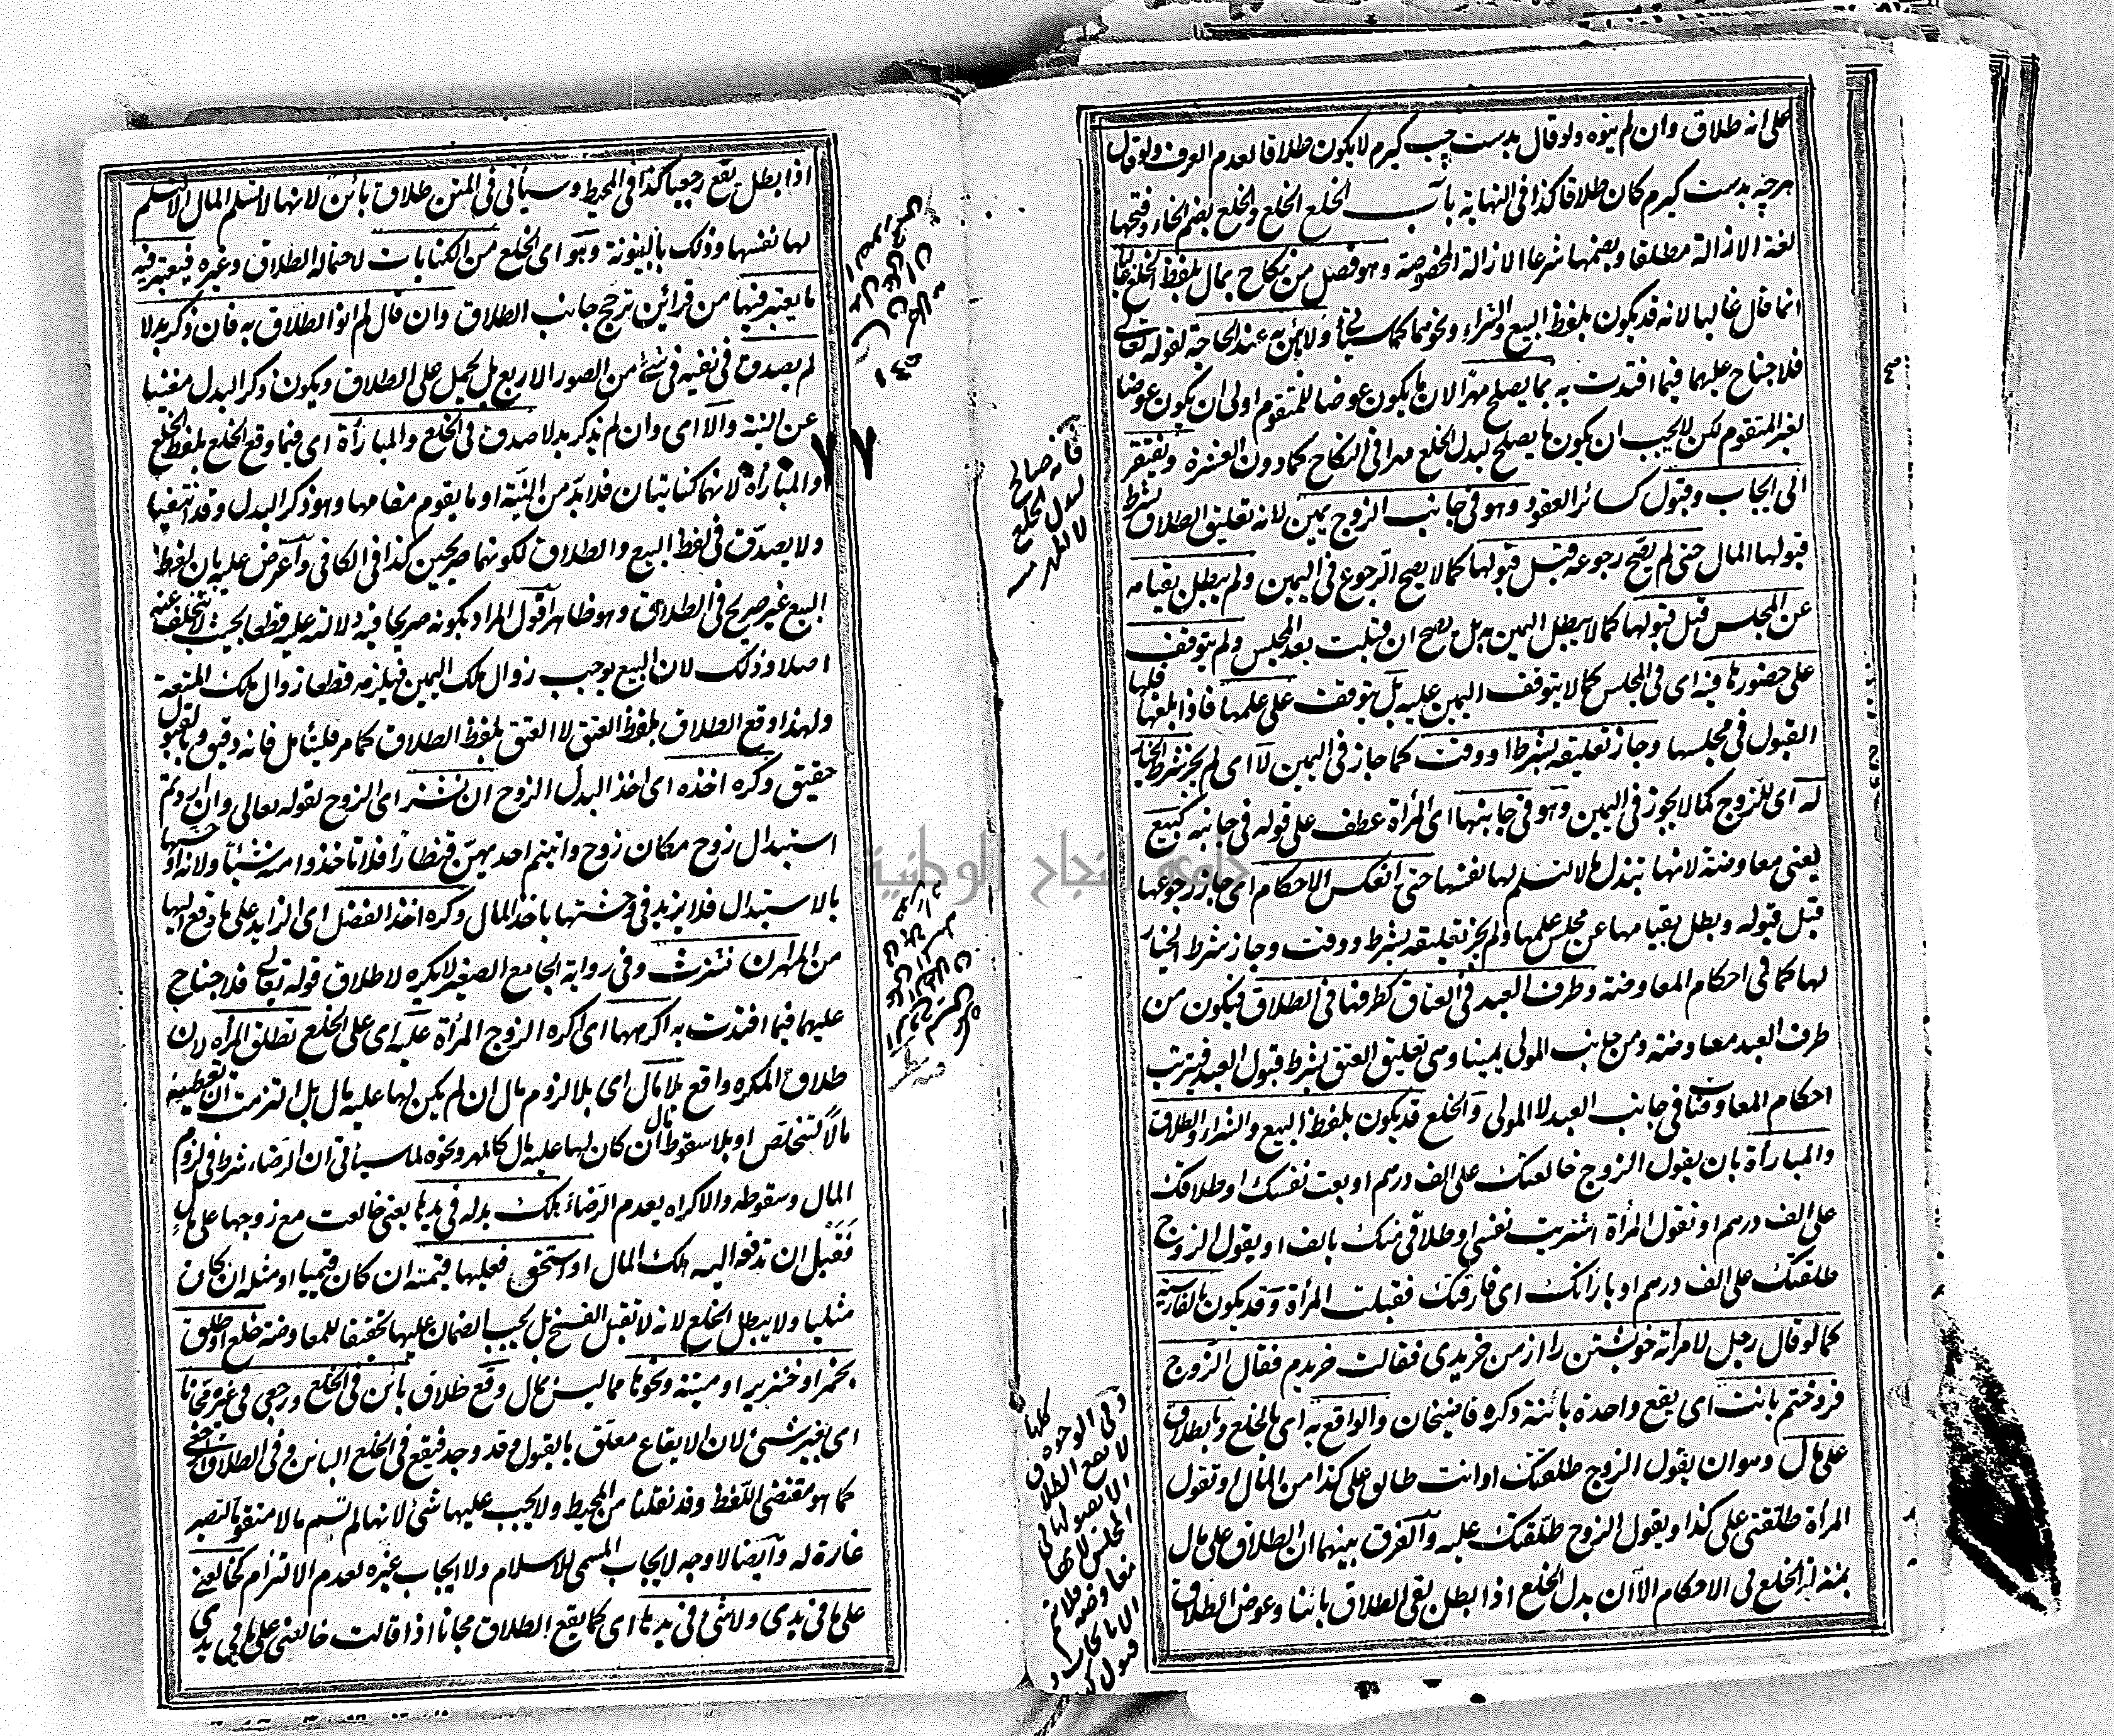 على انه طلاق وان لم ينوه ولو قال بدست چپ كيرم لا يكون طلاقا لعدم العرف ولو قال
هرچه بدست كيرم كان طلاقا كذا فى النهاية باب الخلع الخلع والخلع بضم الخاء وفتحها
لغة الازالة مطلقا وبضمها شرعا الازالة المخصوصة وهو فصل من نكاح بمال بلفظ الخلع غالبا
انما قال غالبا لانه قد يكون بلفظ البيع والشراء ونحوهما كما سيأتى ولا بأس به عند الحاجة لقوله تعالى
فلا جناح عليهما فيما افتدت به بما يصلح مهرا لان ما يكون عوضا للمتقوم اولى ان يكون عوضا
لغير المتقوم لكن لا يجب ان يكون ما يصلح لبدل الخلع مهرا فى النكاح كما دون العشرة ويفتقر
الى ايجاب وقبول كسائر العقود وهو فى جانب الزوج يمين لانه تعليق الطلاق بشرط
قبولها المال حتى لم يصح رجوعه قبل قبولها كما لا يصح الرجوع فى اليمين ولم يبطل بقيامه
عن المجلس قبل قبولها كما لا يبطل اليمين به بل يصح ان قبلت بعد المجلس ولم يتوقف
على حضورها فيه اى فى المجلس كما لا يتوقف اليمين عليه بل يتوقف على علمها فاذا بلغها فلها
القبول فى مجلسها وجاز تعليقه بشرط او وقت كما جاز فى اليمين لا اى لم يجز شرط الخيار
له اى للزوج كما لا يجوز فى اليمين وهو فى جانبها اى المرأة عطف على قوله فى جانبه كبيع
يعنى معاوضة لانها تبذل مالا لتسلم لها نفسها حتى انعكس الاحكام اى جاز رجوعها
قبل قبوله وبطل بقيامها عن مجلس علمها ولم يجز تعليقه بشرط ووقت وجاز شرط الخيار
لها كما فى احكام المعاوضة وطرف العبد فى العتاق كطرفها فى الطلاق فيكون من
طرف العبد معاوضة ومن جانب المولى يمينا وهى تعليق العتق بشرط قبول العبد فيترتب
احكام المعاوضة فى جانب العبد لا المولى والخلع قد يكون بلفظ البيع والشراء والطلاق
والمبارأة بان يقول الزوج خالعتك على الف درهم او بعت نفسك او طلاقك
على الف درهم او تقول المرأة اشتريت نفسى او طلاقى منك بالف او يقول الزوج
طلقتك على الف درهم او بارأتك اى فارقتك فقبلت المرأة وقد يكون بالفارسية
كما لو قال رجل لامرأته خويشتن را از من خريدى فقالت خريدم فقال الزوج
فروختم بانت اى يقع واحدة بائنة ذكره قاضيخان والواقع به اى بالخلع وبالطلاق
على مال وهو ان يقول الزوج طلقتك او انت طالق على كذا من المال او تقول
المرأة طلقنى على كذا ويقول الزوج طلقتك عليه والفرق بينهما ان الطلاق على مال
بمنزلة الخلع فى الاحكام الا ان بدل الخلع اذا بطل بقى الطلاق بائنا وعوض الطلاق
فانه صالح
لبدل الخلع
لا للمهر
وفى الوجوه كلها
لا يقع الطلاق
الا بقبولها فى
المجلس لانها
معاوضة فلا تتم
الا بالايجاب و
قبول
اذا بطل يقع رجعيا كذا فى المحيط وسيأتى فى المتن طلاق بائن لانها لا تسلم المال الا لتسلم
لها نفسها وذلك بالبينونة وهو اى الخلع من الكنايات لاحتماله الطلاق وغيره فيعتبر فيه
ما يعتبر فيها من قرائن ترجح جانب الطلاق وان قال لم انو الطلاق به فان ذكر بدلا
لم يصدق فى نفيه فى شئ من الصور الاربع بل يحمل على الطلاق ويكون ذكر البدل مغنيا
عن النية والا اى وان لم يذكر بدلا صدق فى الخلع والمبارأة اى فيما وقع الخلع بلفظ الخلع
والمبارأة لانهما كنايتان فلا بد من النية او ما يقوم مقامها وهو ذكر البدل وقد انتفيا
ولا يصدق فى لفظ البيع والطلاق لكونهما صريحين كذا فى الكافى واعترض عليه بان لفظ
البيع غير صريح فى الطلاق وهو ظاهر اقول المراد بكونه صريحا فيه دلالته عليه قطعا بحيث لا يتخلف عنه
اصلا وذلك لان البيع يوجب زوال ملك اليمين فيلزمه قطعا زوال ملك المتعة
ولهذا وقع الطلاق بلفظ العتق لا العتق بلفظ الطلاق كما مر فليتأمل فانه دقيق وبالقبول
حقيق وكره اخذه اى اخذ البدل الزوج ان نشز اى الزوج لقوله تعالى وان اردتم
استبدال زوج مكان زوج واتيتم احديهن قنطارا فلا تأخذوا منه شيئا ولانه اوحشها
بالاستبدال فلا يزيد فى وحشتها باخذ المال وكره اخذ الفضل اى الزايد على ما دفع اليها
من المهر ان نشزت وفى رواية الجامع الصغير لا يكره لاطلاق قوله تعالى فلا جناح
عليهما فيما افتدت به اكرهها اى اكره الزوج المرأة عليه اى على الخلع تطلق المرأة لان
طلاق المكره واقع بلا مال اى بلا لزوم مال ان لم يكن لها عليه مال بل التزمت ان تعطيه
مالا لتتخلص او بلا سقوط مال ان كان لها عليه مال كالمهر ونحوه لما سيأتى ان الرضاء شرط فى لزوم
المال وسقوطه والاكراه يعدم الرضاء هلك بدله فى يدها يعنى خالعت مع زوجها على مال
فقبل ان تدفعه اليه هلك المال او استحق فعليها قيمته ان كان قيميا او مثله ان كان
مثليا ولا يبطل الخلع لانه لا تقبل الفسخ بل يجب الضمان عليها تحقيقا للمعاوضة خلع او طلق
بخمر او خنزير او ميتة ونحوها مما ليس بمال وقع طلاق بائن فى الخلع ورجعى فى غيره مجانا
اى بغير شئ لان الايقاع معلق بالقبول وقد وجد فيقع فى الخلع البائن وفى الطلاق الرجعى
كما هو مقتضى اللفظ وقد نقلنا من المحيط ولا يجب عليها شئ لانها لم تسم مالا متقوما لتصير
غارة له وايضا لا وجه لايجاب المسمى للاسلام ولا ايجاب غيره لعدم الالتزام كخالعنى
على ما فى يدى ولا شئ فى يدها اى كما يقع الطلاق مجانا اذا قالت خالعنى على ما فى يدى
٧٧
جامعة النجاح الوطنية